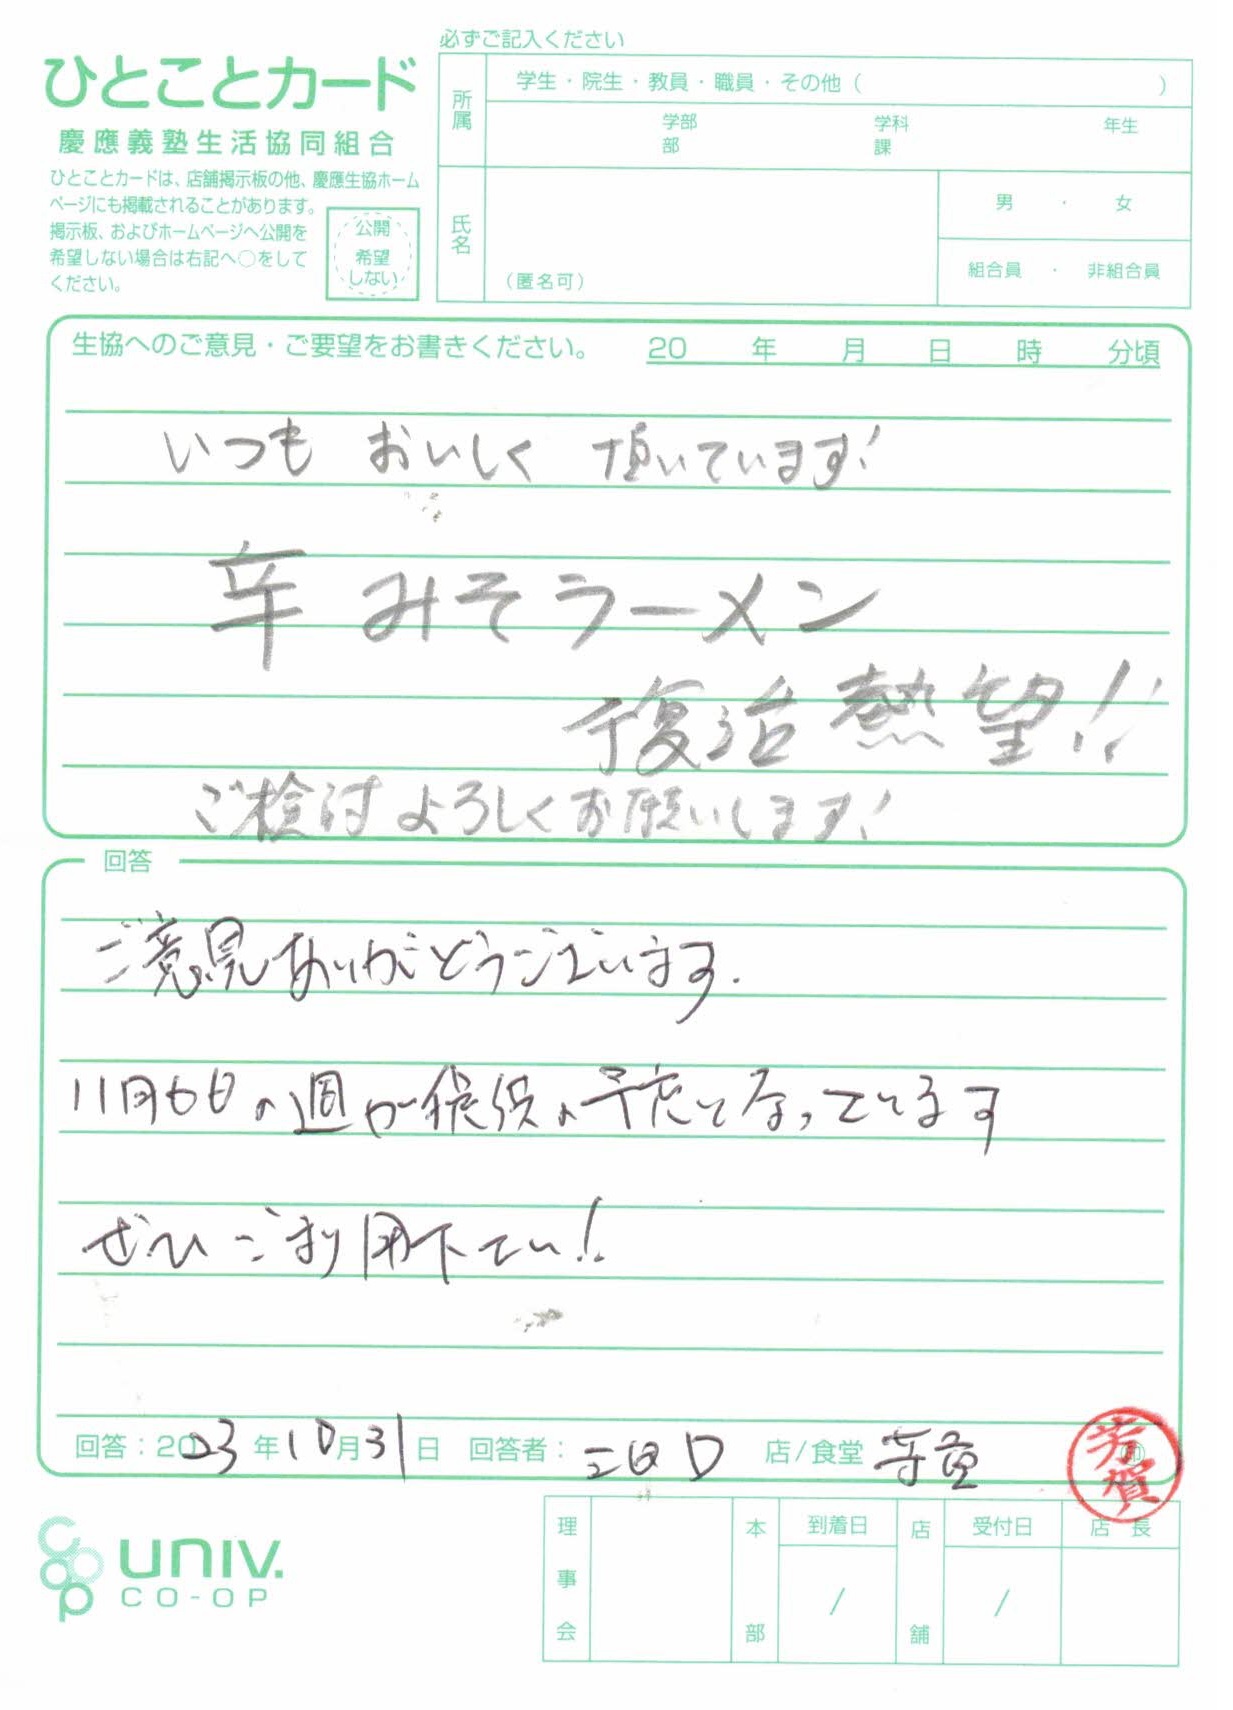 必ずご記入ください
ひとことカード
慶應義塾生活協同組合
ひとことカードは、店舗掲示板の他、慶應生協ホーム
ページにも掲載されることがあります。
掲示板、およびホームページへ公開を
希望しない場合は右記へ○をして
ください。
公開
希望
しない
所属
学生・院生・教員・職員・その他（　）
学部 学科 年生
部 課
氏名
（匿名可）
男 ・ 女
組合員 ・ 非組合員
生協へのご意見・ご要望をお書きください。 20 年 月 日 時 分頃
いつも おいしく 頂いています!
辛みそラーメン
復活熱望!!
ご検討よろしくお願いします!
回答
ご意見ありがとうございます.
11月6日の週が提供の予定となっています
ぜひご利用下さい!
回答：2023年10月31日 回答者： 店/食堂
印
芳賀
univ.
CO-OP
coop
理事会
本部
到着日
/
店舗
受付日
/
店長